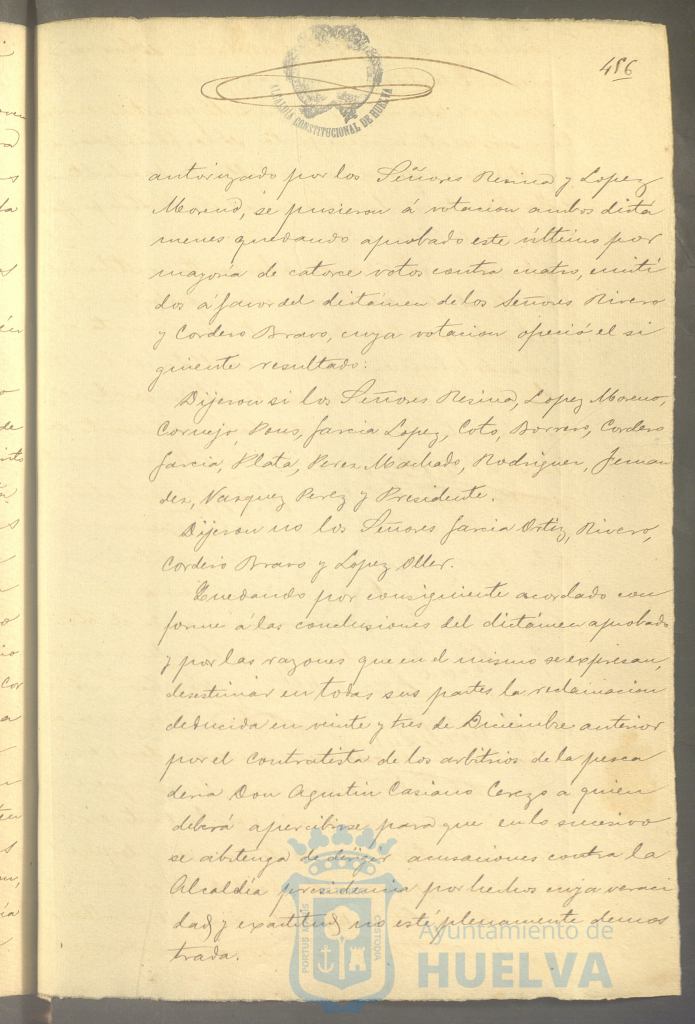 456
ALCALDÍA CONSTITUCIONAL DE HUELVA
autorizado por los Señores Resina y Lopez
Moreno, se pusieron á votacion ambos dictá
menes quedando aprobado este último por
mayoría de catorce votos contra cuatro, emiti
dos á favor del dictámen de los Señores Rivero
y Cordero Bravo, cuya votacion ofreció el si
guiente resultado:
Dijeron si los Señores Resina, Lopez Moreno,
Cornejo, Pons, Garcia Lopez, Coto, Borrero, Cordero
Garcia, Plata, Perez Machado, Rodriguez, Fernan
dez, Vazquez Perez y Presidente.
Dijeron no los Señores Garcia Ortiz, Rivero,
Cordero Bravo y Lopez Oller.
Quedando por consiguiente acordado con
forme á las conclusiones del dictámen aprobado
y por las razones que en el mismo se expresan,
desestimar en todas sus partes la reclamacion
deducida en veinte y tres de Diciembre anterior
por el contratista de los arbitrios de la pesca
deria Don Agustin Casiano Cerezo a quien
deberá apercibirse para que en lo sucesivo
se abstenga de dirigir acusaciones contra la
Alcaldía presidencia por hechos cuya veraci
dad y exactitud no esté plenamente demos
trada.
PORTUS MARIS CUSTODIA
Ayuntamiento de
HUELVA